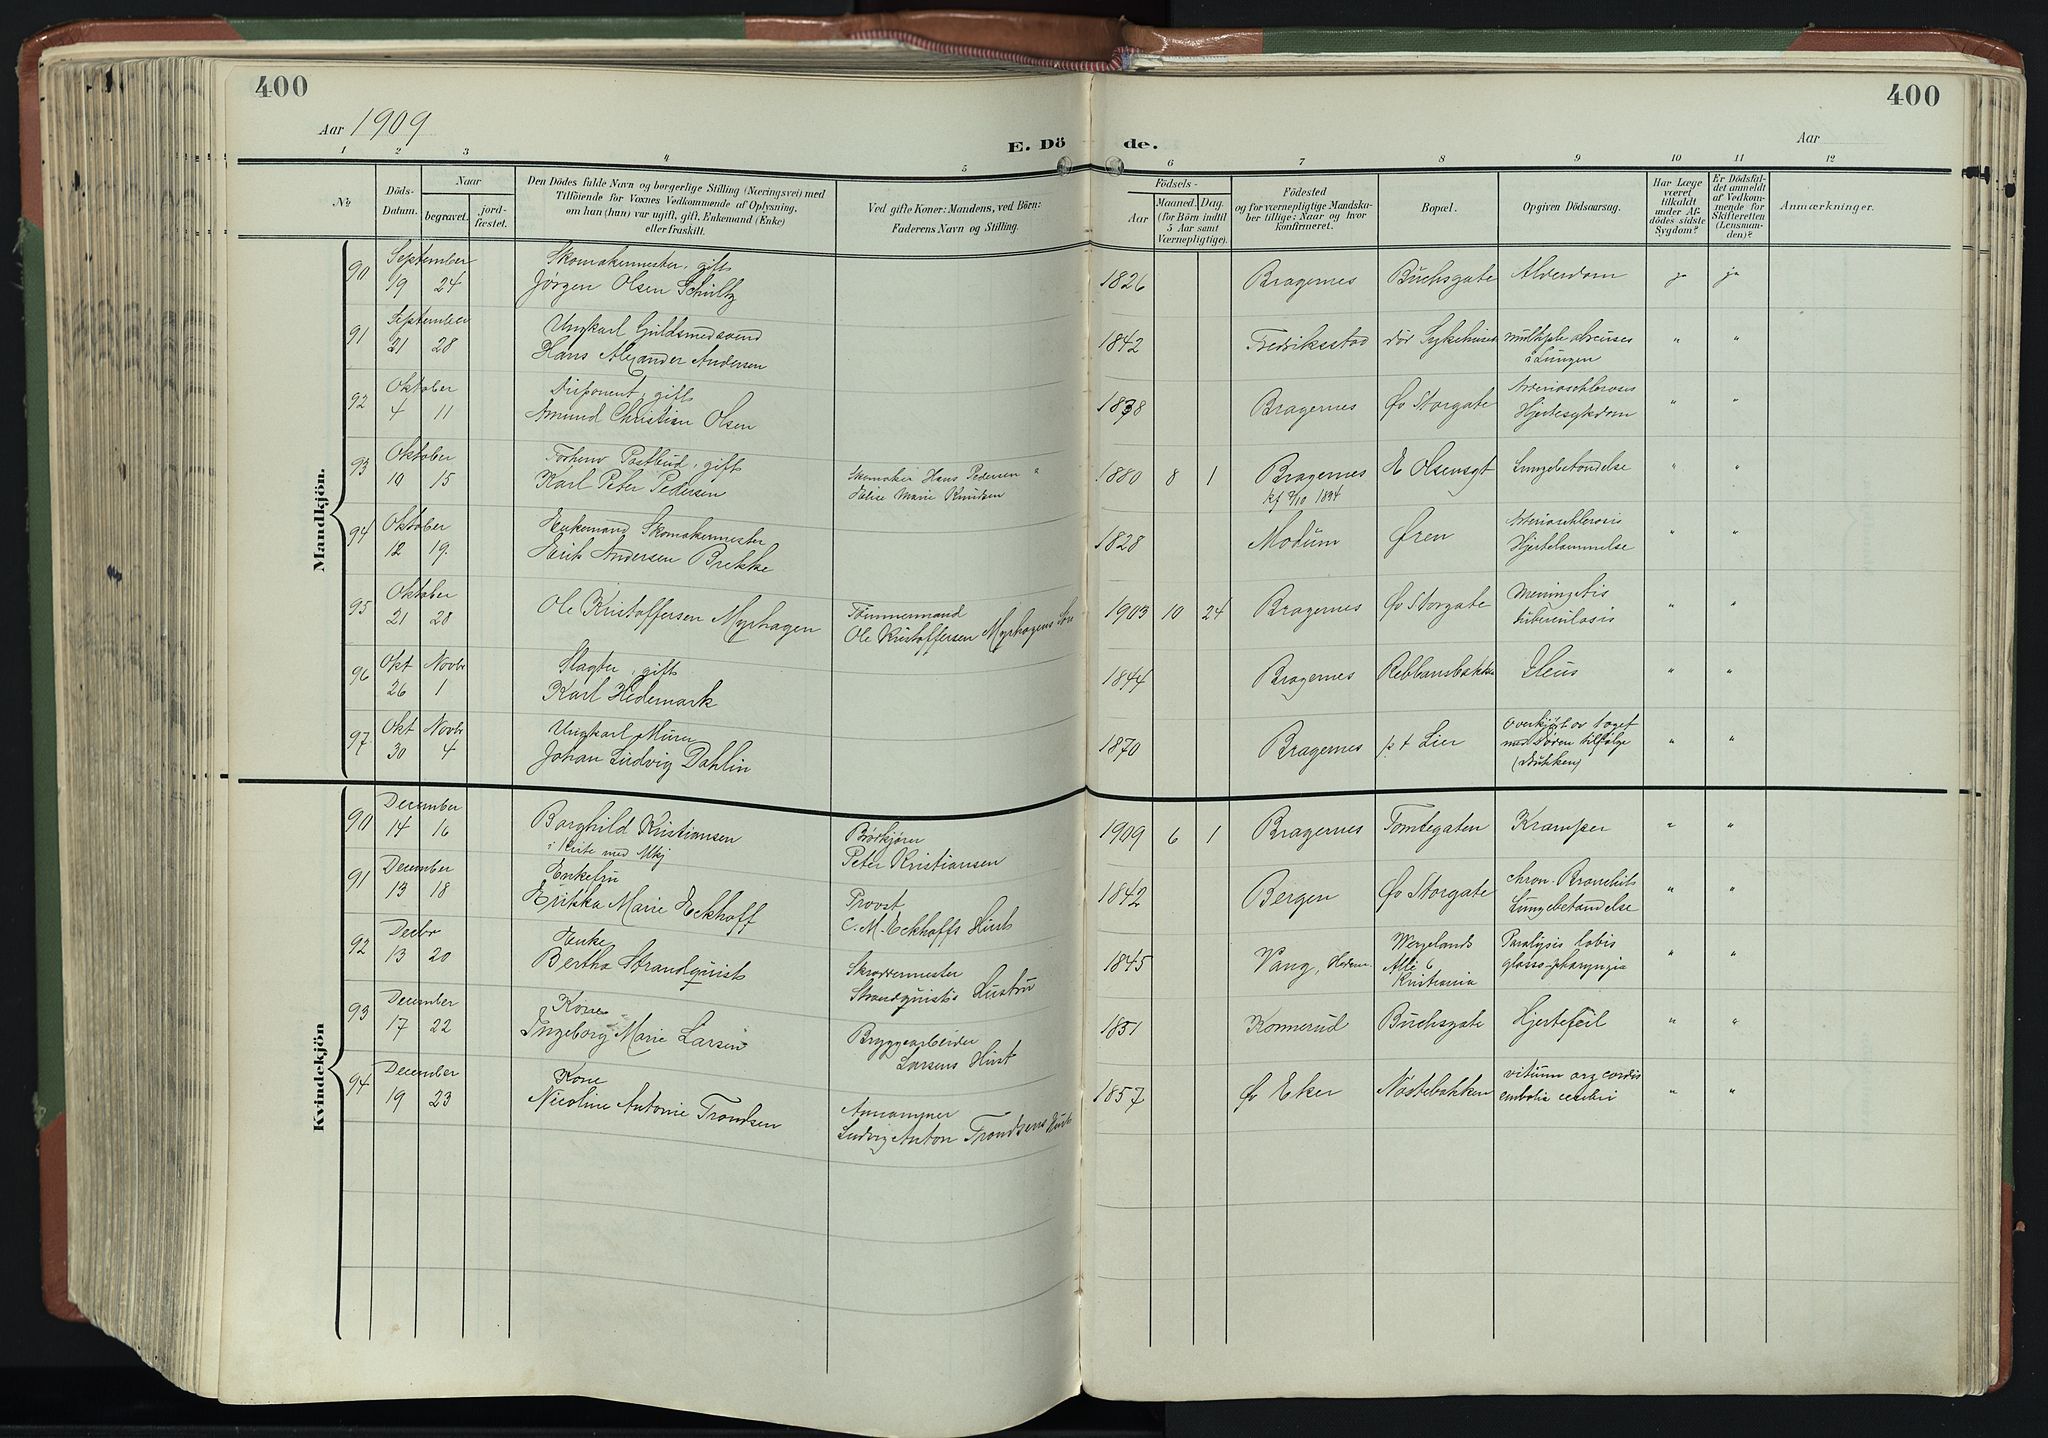 400
400
Aar 1909
E. Dö
de.
Aar
1 2 3 4 5 6 7 8 9 10 11 12
No
Döds-
Datum.
Naar
begravet.
jord-
fæstet.
Den Dödes fulde Navn og borgerlige Stilling (Næringsvei) med
Tilföiende for Voxnes Vedkommende af Oplysning.
om han (hun) var ugift, gift, Enkemand (Enke)
eller fraskilt.
Ved gifte Koner: Mandens, ved Börn:
Faderens Navn og Stilling.
Födsels-
Aar
Maaned. Dag.
(for Börn indtil
5 Aar samt
Værnepligtige).
Födested
og for værnepligtige Mandska-
ber tillige: Naar og hvor
konfirmeret.
Bopæl.
Opgiven Dödsaarsag.
Har Læge
været
tilkaldt
under Af-
dödes sidste
Sygdom?
Er Dödsfal-
det anmeldt
af Vedkom-
mende for
Skifteretten
(Lensman-
den)?
Anmærkninger.
Mandkjön.
90 September 19 24 Skomakermester, gift
Jørgen Olsen Schultz 1826 Bragernes Buchsgate Alderdom ja ja
91 September 21 28 Ungkarl Guldsmedsvend
Hans Alexander Andersen 1842 Fredriksstad Sykehuset multiple abscesses
i Lungen " "
92 Oktober 4 11 Disponent, gift
Amund Christian Olsen 1838 Bragernes Øv Storgate Arterioschlerosis
Hjertesykdom " "
93 Oktober 10 15 Forhenv Postbud, gift
Karl Peter Pedersen Skomaker Hans Pedersen "
Marie Knudsen 1880 8 1 Bragernes
kf 2/10 1894 E Olsensgt Lungebetændelse " "
94 Oktober 12 19. Enkemand Skomakermester
Erik Andersen Brekke 1828 Modum Øren Arterioschlerosis
Hjertelammelse " "
95 Oktober 21 28 Ole Kristoffersen Myrhagen Tømmermand
Ole Kristoffersen Myrhagens Søn 1903 10 24 Bragernes Øv Storgate Meningitis
tuberculosis " "
96 Okt 26 Novbr 1 Slagter, gift
Karl Hedemark 1844 Bragernes Rebbansbakken Ileus " "
97. Okt 30 Novbr 4 Ungkarl Murer
Johan Ludvig Dahlin 1870 Bragernes p.t Lier Overkjørt av toget
med døden tilfølge
(Drukken) " "
Kvindekjön
90 December 14 16 Borghild Kristiansen
Peter Kristiansen 1909 6 1 Bragernes Tomtegaten Kramper " "
91 December 13 18 Enkefru
Erikka Marie Eckhoff Provst
C. M. Eckhoffs Hust 1842 Bergen Øv Storgate chron. Bronchit
Lungebetændelse " "
92 Decbr 13 20 Enke
Bertha Strandquist Skræddermester
Strandquists Hustru 1845 Vang, Hedem. Wergelands
Alle 6
Kristiania Paralysis labio
glosso-pharyngia " "
93 December 17 22 Kone
Ingeborg Marie Larsen Bryggearbeider
Larsens Hust 1851 Konnerud Buchsgate Hjertefeil " "
94 December 19 23 Kone
Nicoline Antonie Trondsen
Ludvig Anton Trondsens Hust 1857 Øv Eker Nøstebakken vitium org cordis
embolia cerebri " "